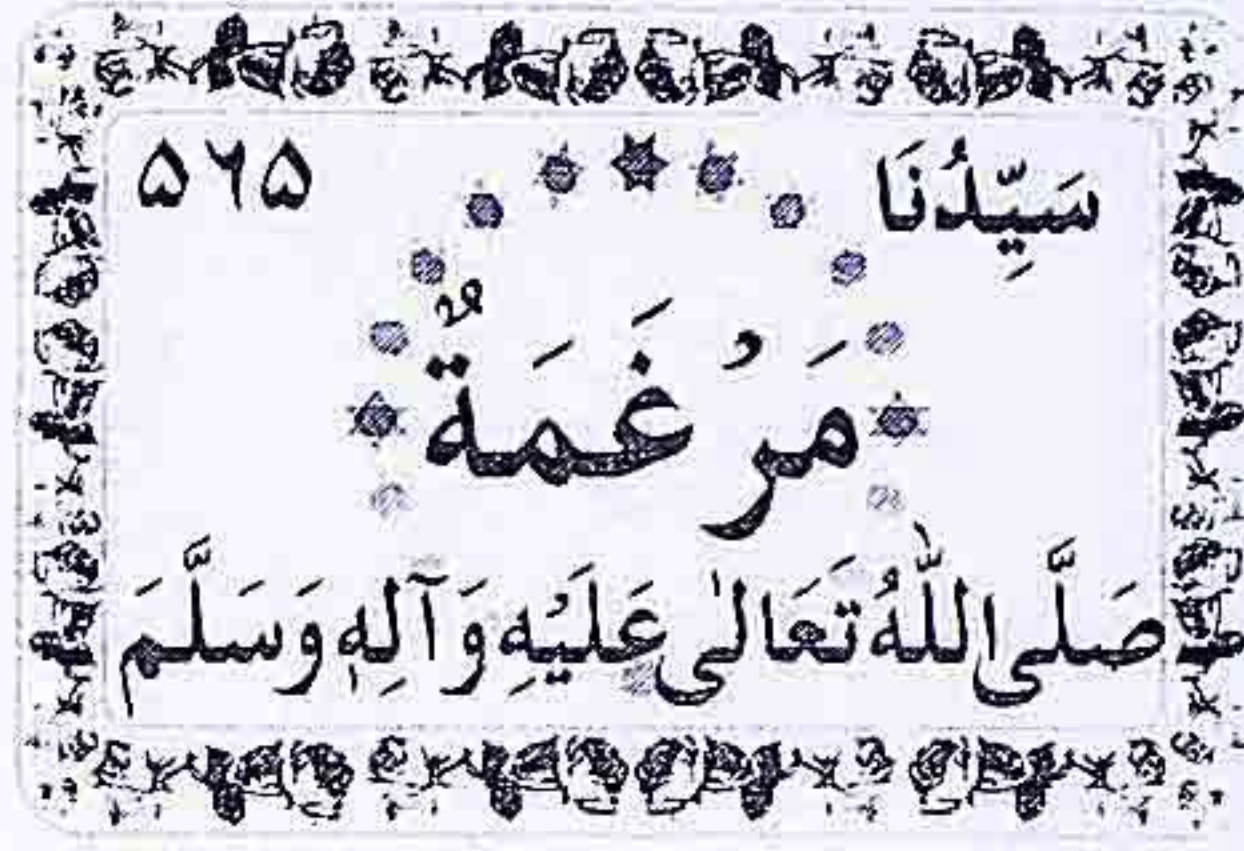 سَيِّدُنَا ۵۶۵
مَرْغَمَةٌ
صَلَّی اللّٰهُ تَعَالٰی عَلَيْهِ وَآلِهٖ وَسَلَّمَ